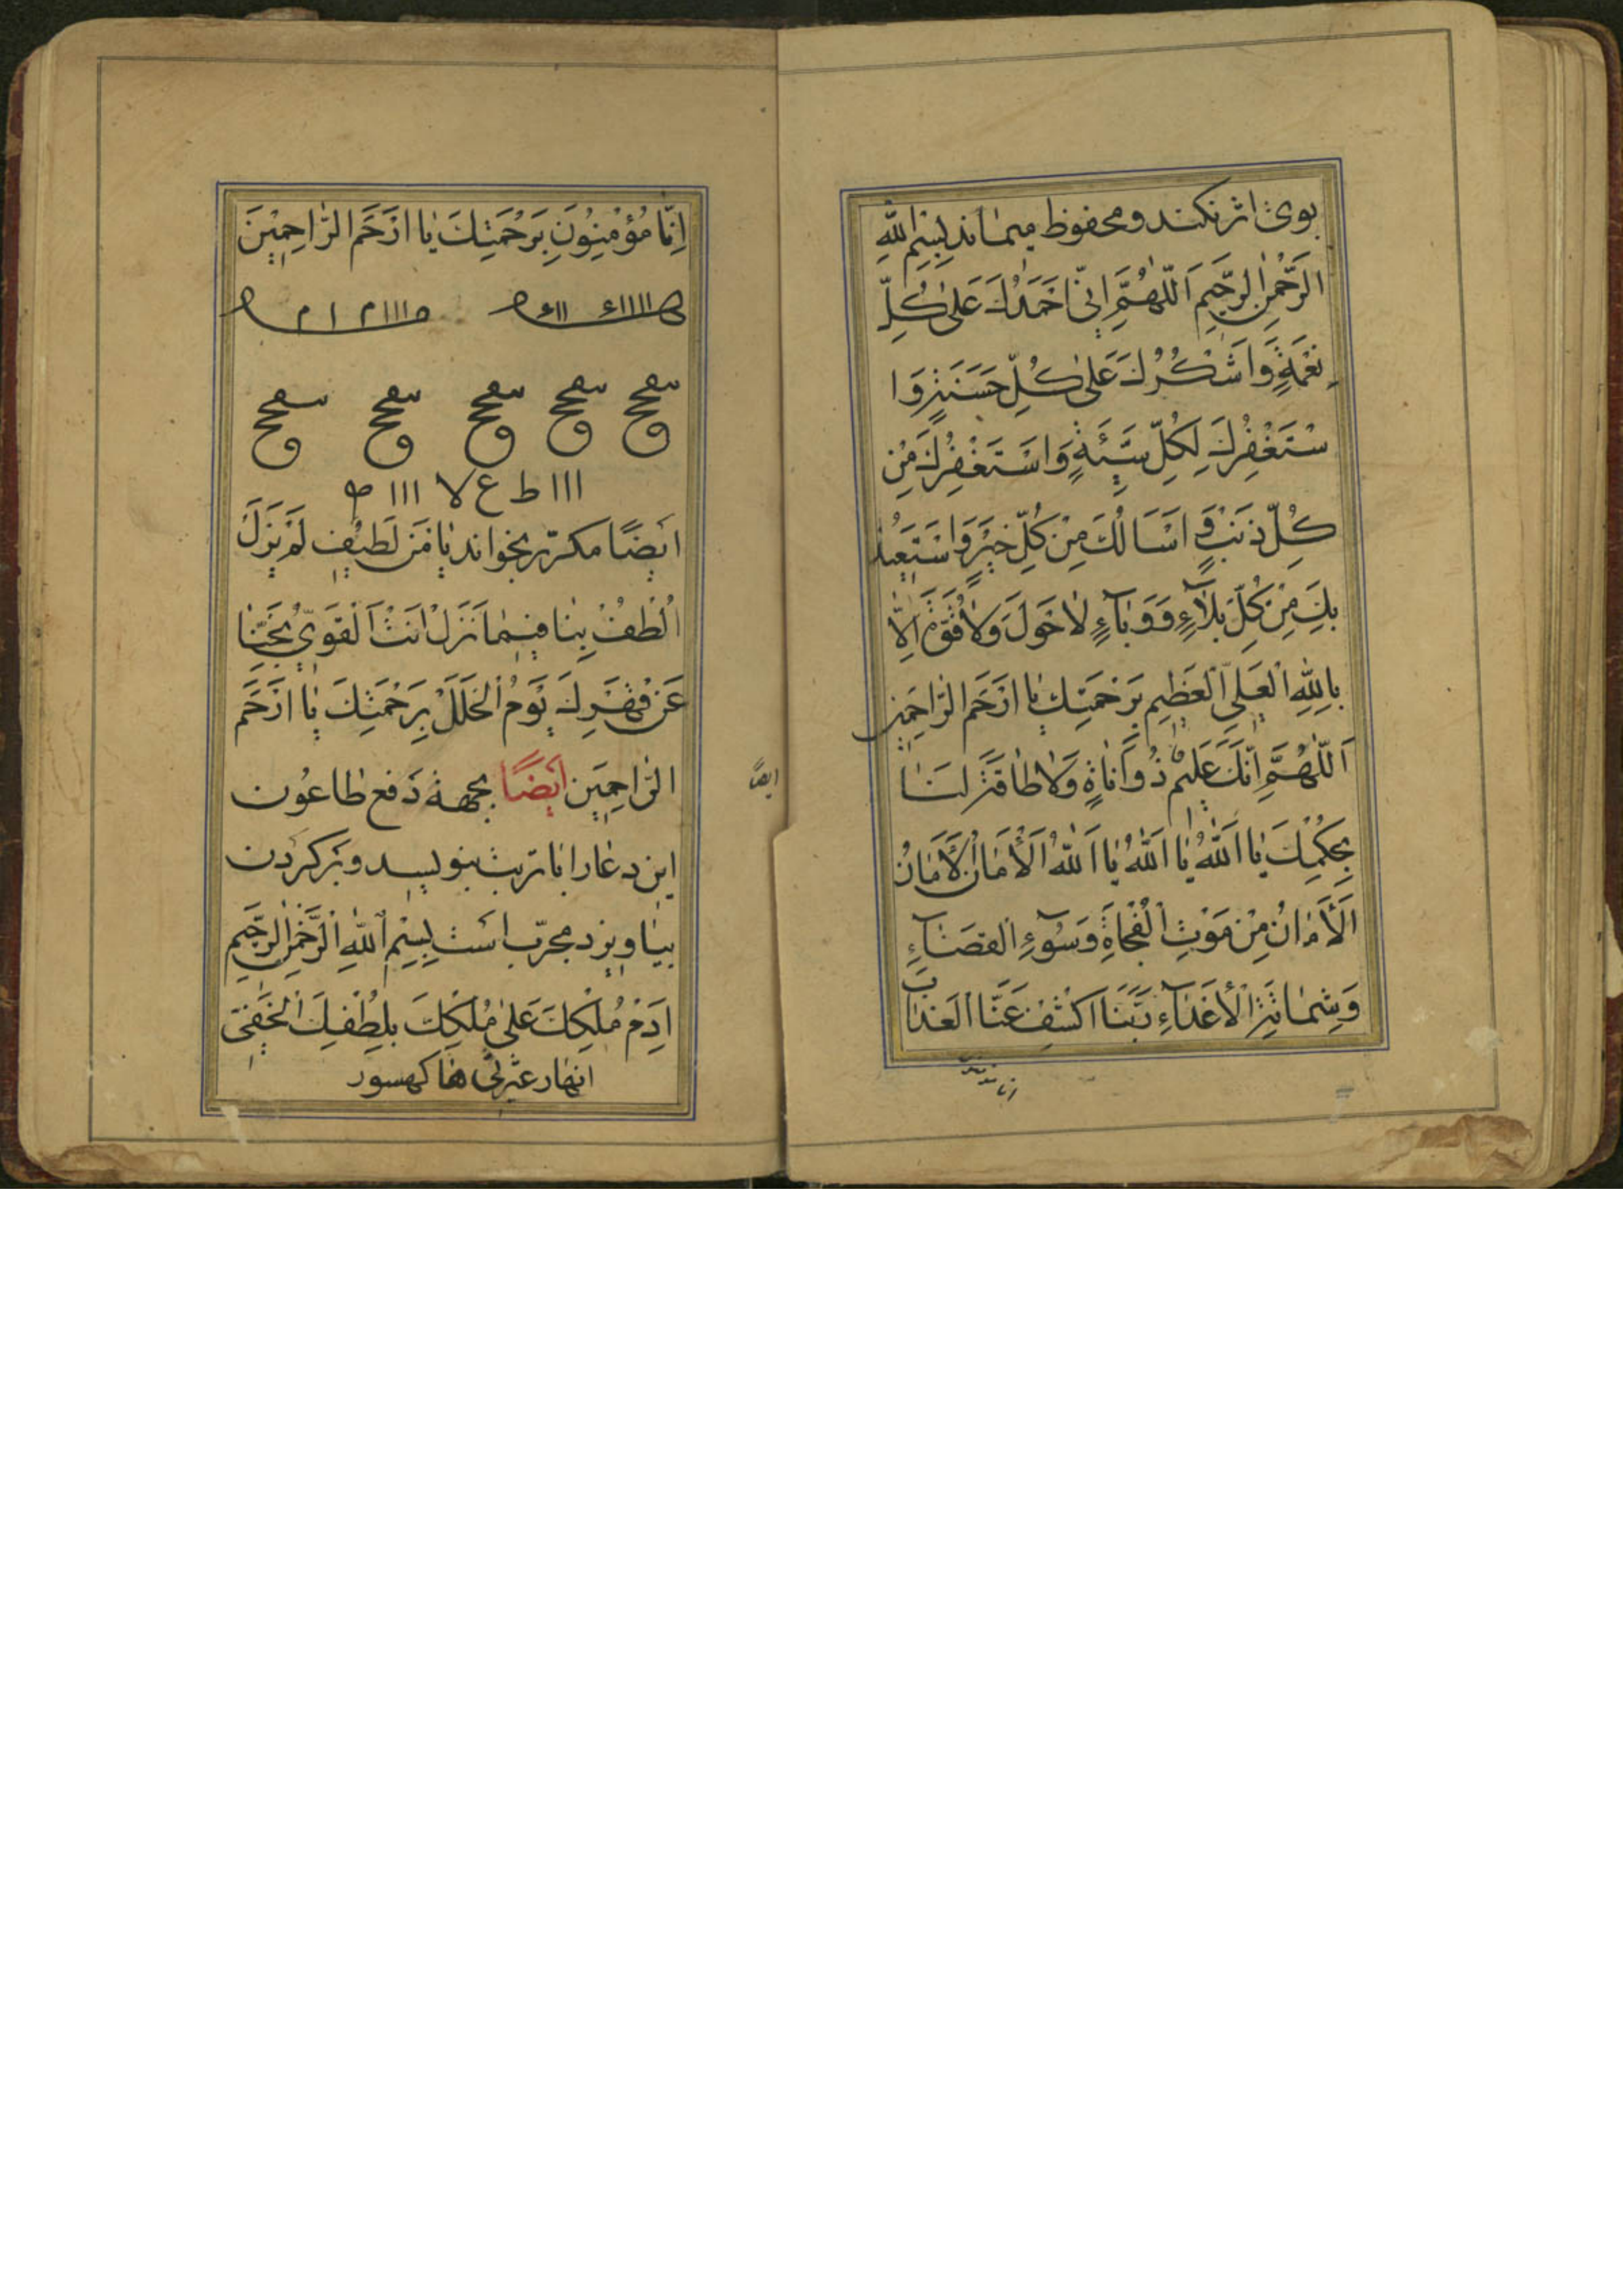 بوی اثر نکند و محفوظ میماند بِسْمِ اللّٰهِ
الرَّحْمٰنِ الرَّحِیمِ اَللّٰهُمَّ اِنّی اَحْمَدُكَ عَلیٰ كُلِّ
نِعْمَةٍ وَ اَشْكُرُكَ عَلیٰ كُلِّ حَسَنَةٍ وَ ا
سْتَغْفِرُكَ لِكُلِّ سَیِّئَةٍ وَ اَسْتَغْفِرُكَ مِنْ
كُلِّ ذَنْبٍ وَ اَسْاَلُكَ مِنْ كُلِّ خَیْرٍ وَ اَسْتَعیذُ
بِكَ مِنْ كُلِّ بَلآءٍ وَ وَبآءٍ لاٰ حَوْلَ وَلاٰ قُوَّةَ اِلاّٰ
بِاللّٰهِ الْعَلِیِّ الْعَظِیمِ بِرَحْمَتِكَ یٰا اَرْحَمَ الرّٰاحِمینَ
اَللّٰهُمَّ اِنَّكَ عَلیمٌ ذُو اَنٰاةٍ وَلاٰ طٰاقَةَ لَنٰا
بِحِكْمِكَ یٰا اَللّٰهُ یٰا اَللّٰهُ یٰا اَللّٰهُ اَلْأَمٰانُ اَلْأَمٰانُ
اَلْأَمٰانُ مِنْ مَوْتِ الْفُجْاَةِ وَ سُوۤءِ الْقَضٰآءِ
وَ شِمٰاتَةِ الْأَعْدٰآءِ رَبَّنٰا اكْشِفْ عَنَّا الْعَذٰابَ
انا
ایضًا
اِنّٰا مُؤْمِنُونَ بِرَحْمَتِكَ یٰا اَرْحَمَ الرّٰاحِمِیْنَ
ااا ط ع لا ااا
ایضًا مکرّر بخواند یٰا مَنْ لَطیفٍ لَمْ یَزَلْ
اُلْطُفْ بِنٰا فیمٰا نَزَلَ اَنْتَ الْقَوِیُّ نَجِّنٰا
عَنْ قَهْرِكَ یَوْمَ الْخَلَلْ بِرَحْمَتِكَ یٰا اَرْحَمَ
الرّٰاحِمینَ ایضًا بجهة دفع طاعُون
این دعا را با تربت بنویسد و بَر گردن
بیٰاویزد مجرّب است بِسْمِ اللّٰهِ الرَّحْمٰنِ الرَّحیمِ
اَدِمْ مُلْكِكَ عَلیٰ مُلْكِكَ بِلُطْفِكَ الْخَفِیّ